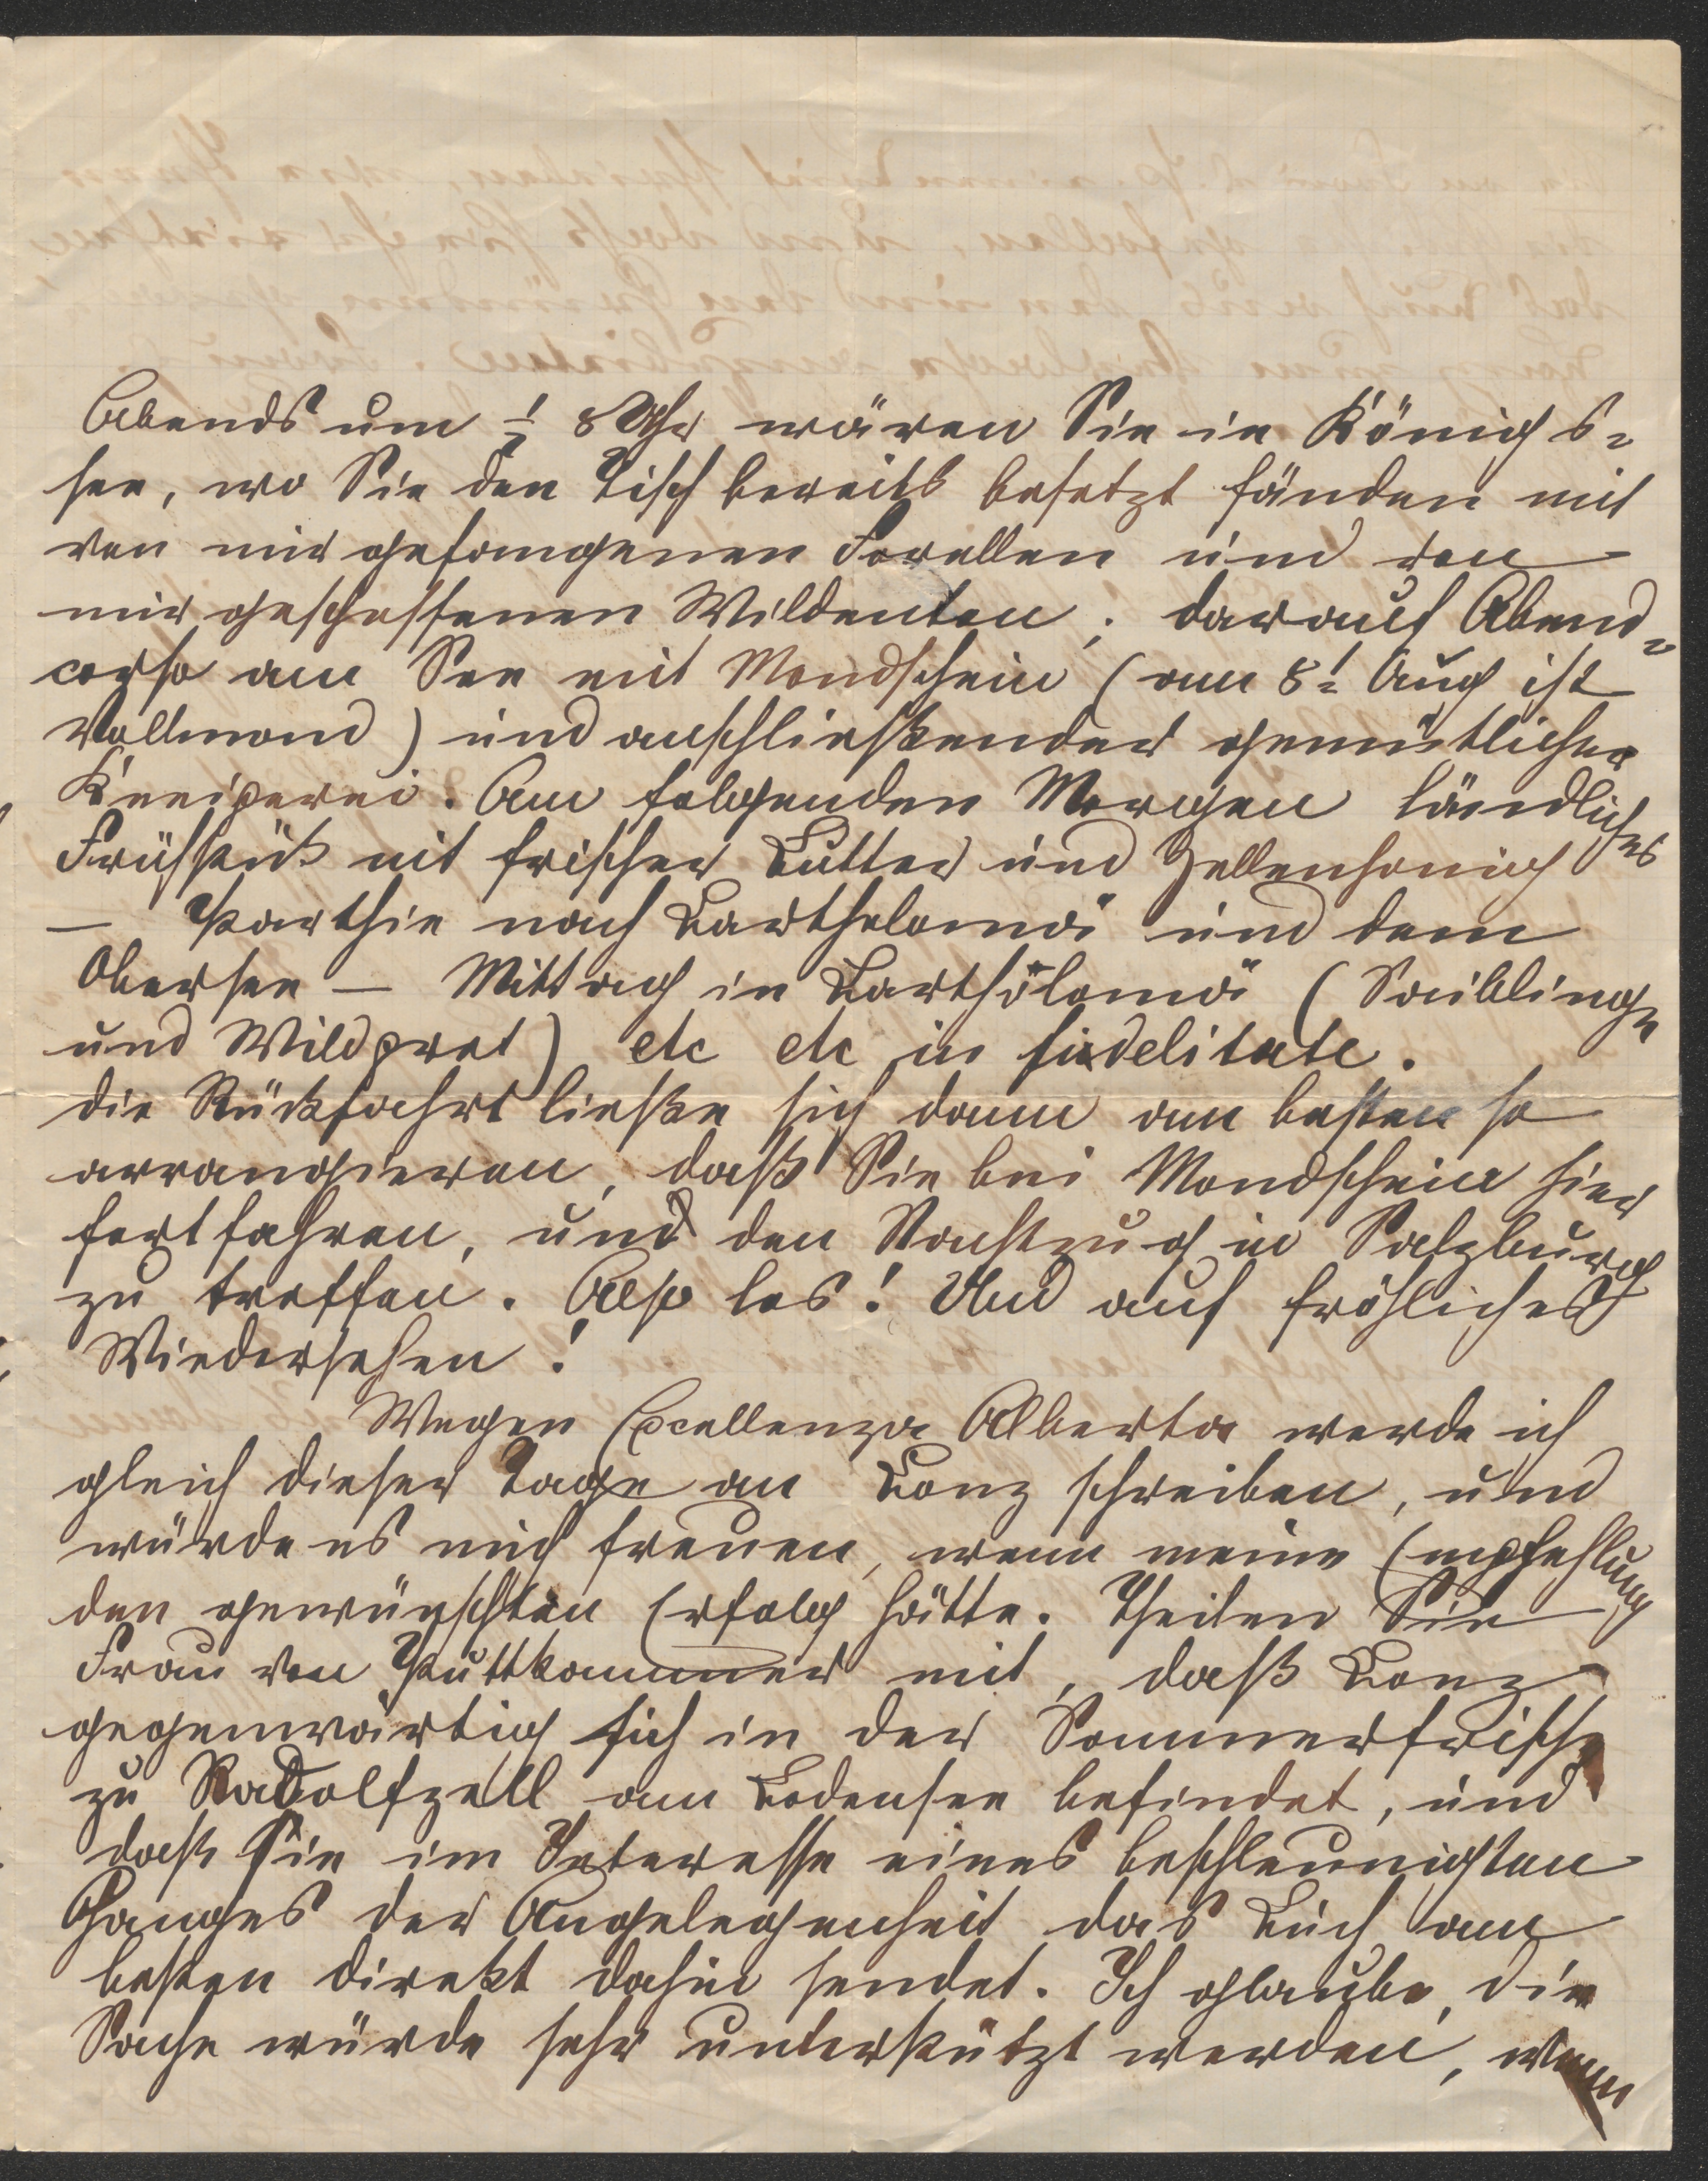 Abends um ½ 8 Uhr wären Sie in Königs=
see, wo Sie den Tisch bereits besetzt fänden mit
von mir gefangenen Forellen und von
mir geschossenen Wildenten; darauf Abend=
corso am See mit Mondschein (am 8t Aug ist
Vollmond) und anschließender gemütlicher
Kneiperei. Am folgenden Morgen ländliches
Frühstük mit frischer Butter und Zellenhonig
— Parthie nach Bartholomä und dem
Obersee — Mittag in Bartholomä (Saiblinge
und Wildpret) etc etc in fidelitate.
die Rückfahrt ließe sich dann am besten so
arrangieren, daß Sie bei Mondschein hier
fortfahren, und den Nachtzug in Salzburg
zu treffen. Also los! Und auf fröhliches
Wiedersehen!
Wegen Excellenza Alberta werde ich
gleich dieser Tage an Bonz schreiben, und
würde es mich freuen, wenn meine Empfehlung
den gewünschten Erfolg hätte. Theilen Sie
Frau von Puttkammer mit, daß Bonz
gegenwärtig sich in der Sommerfrische
zu Radolfzell am Bodensee befindet, und
daß sie im Interesse eines beschleunigten
Ganges der Angelegenheit das Buch am
besten direkt dahin sendet. Ich glaube, die
Sache würde sehr unterstützt werden, wenn